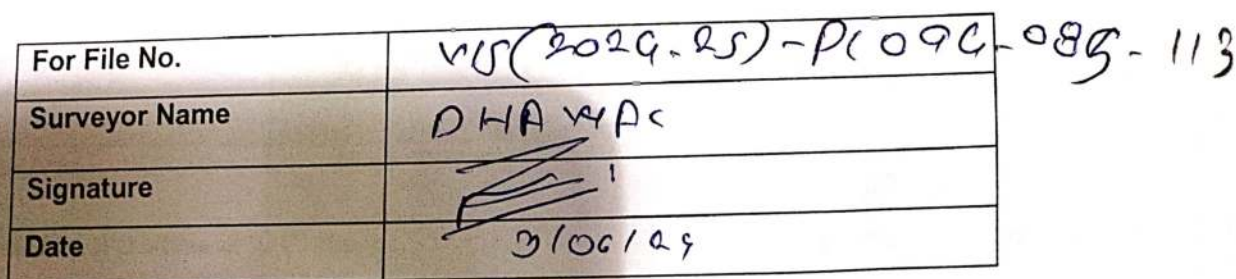 For File No. VIS(2024-25)-PL094-085-113
Surveyor Name DHAWAL
Signature
Date 3/06/24